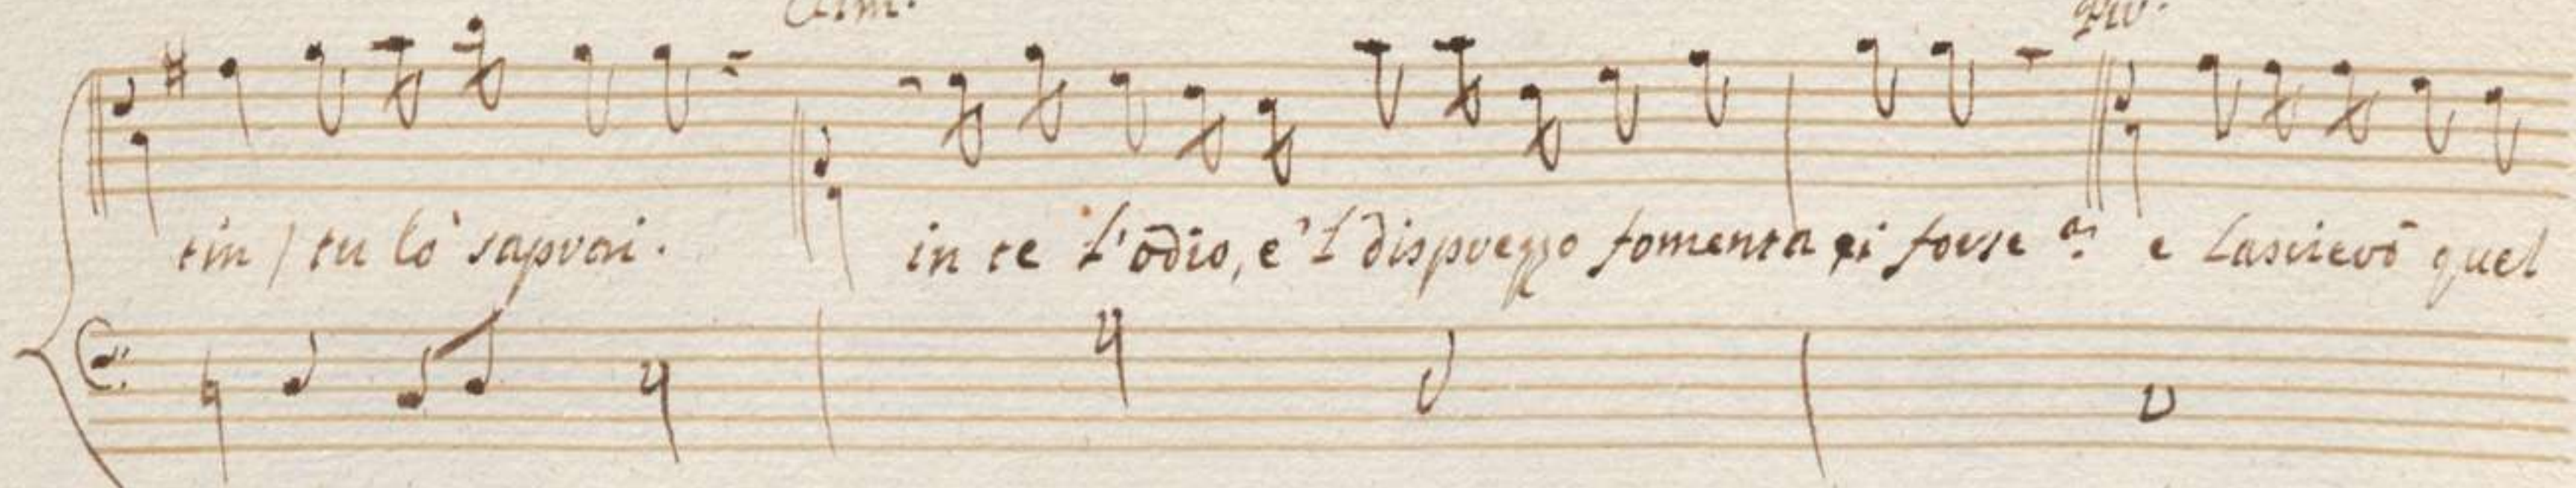 tin / tu lo' saprai. in te l'odio, e'l disprezzo fomentasi forse? e lascierò quel